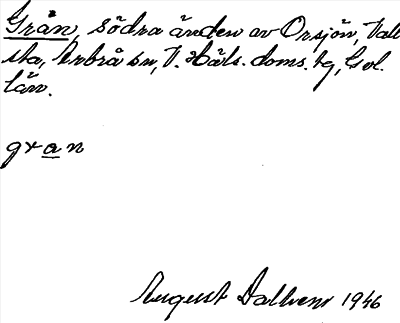 Grån, södra änden av Orsjön, Vall
sta, Arbrå sn, V. Häls. doms. tg, Gvl.
län.
gran
August Dallvens 1946